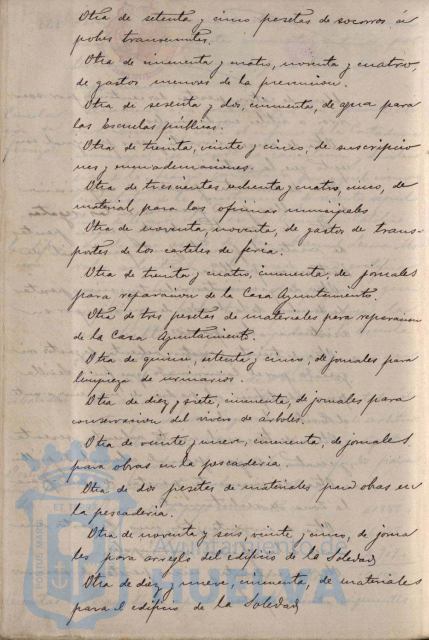 Otra de setenta y cinco pesetas de socorros á
pobres transeuntes.
Otra de cincuenta y cuatro, noventa y cuatro,
de gastos menores de la prevencion.
Otra de sesenta y dos, cincuenta, de agua para
las Escuelas públicas.
Otra de treinta, veinte y cinco, de suscripcio
nes y encuadernaciones.
Otra de trescientas ochenta y cuatro, cinco, de
material para las oficinas municipales
Otra de noventa, noventa, de gastos de trans-
portes de los carteles de feria.
Otra de treinta y cuatro, cincuenta, de jornales
para reparacion de la Casa Ayuntamiento.
Otra de tres pesetas de materiales para reparacion
de la Casa Ayuntamiento.
Otra de quince, setenta y cinco, de jornales para
limpieza de urinarios.
Otra de diez y siete, cincuenta, de jornales para
conservacion del vivero de árboles.
Otra de veinte y nueve, cincuenta, de jornales
para obras en la pescaderia.
Otra de dos pesetas de materiales para obras en
la pescaderia.
Otra de noventa y seis, veinte y cinco, de jorna
les para arreglo del edificio de la Soledad
Otra de diez y nueve, cincuenta, de materiales
para el edificio de la Soledad
Ayuntamiento de
HUELVA